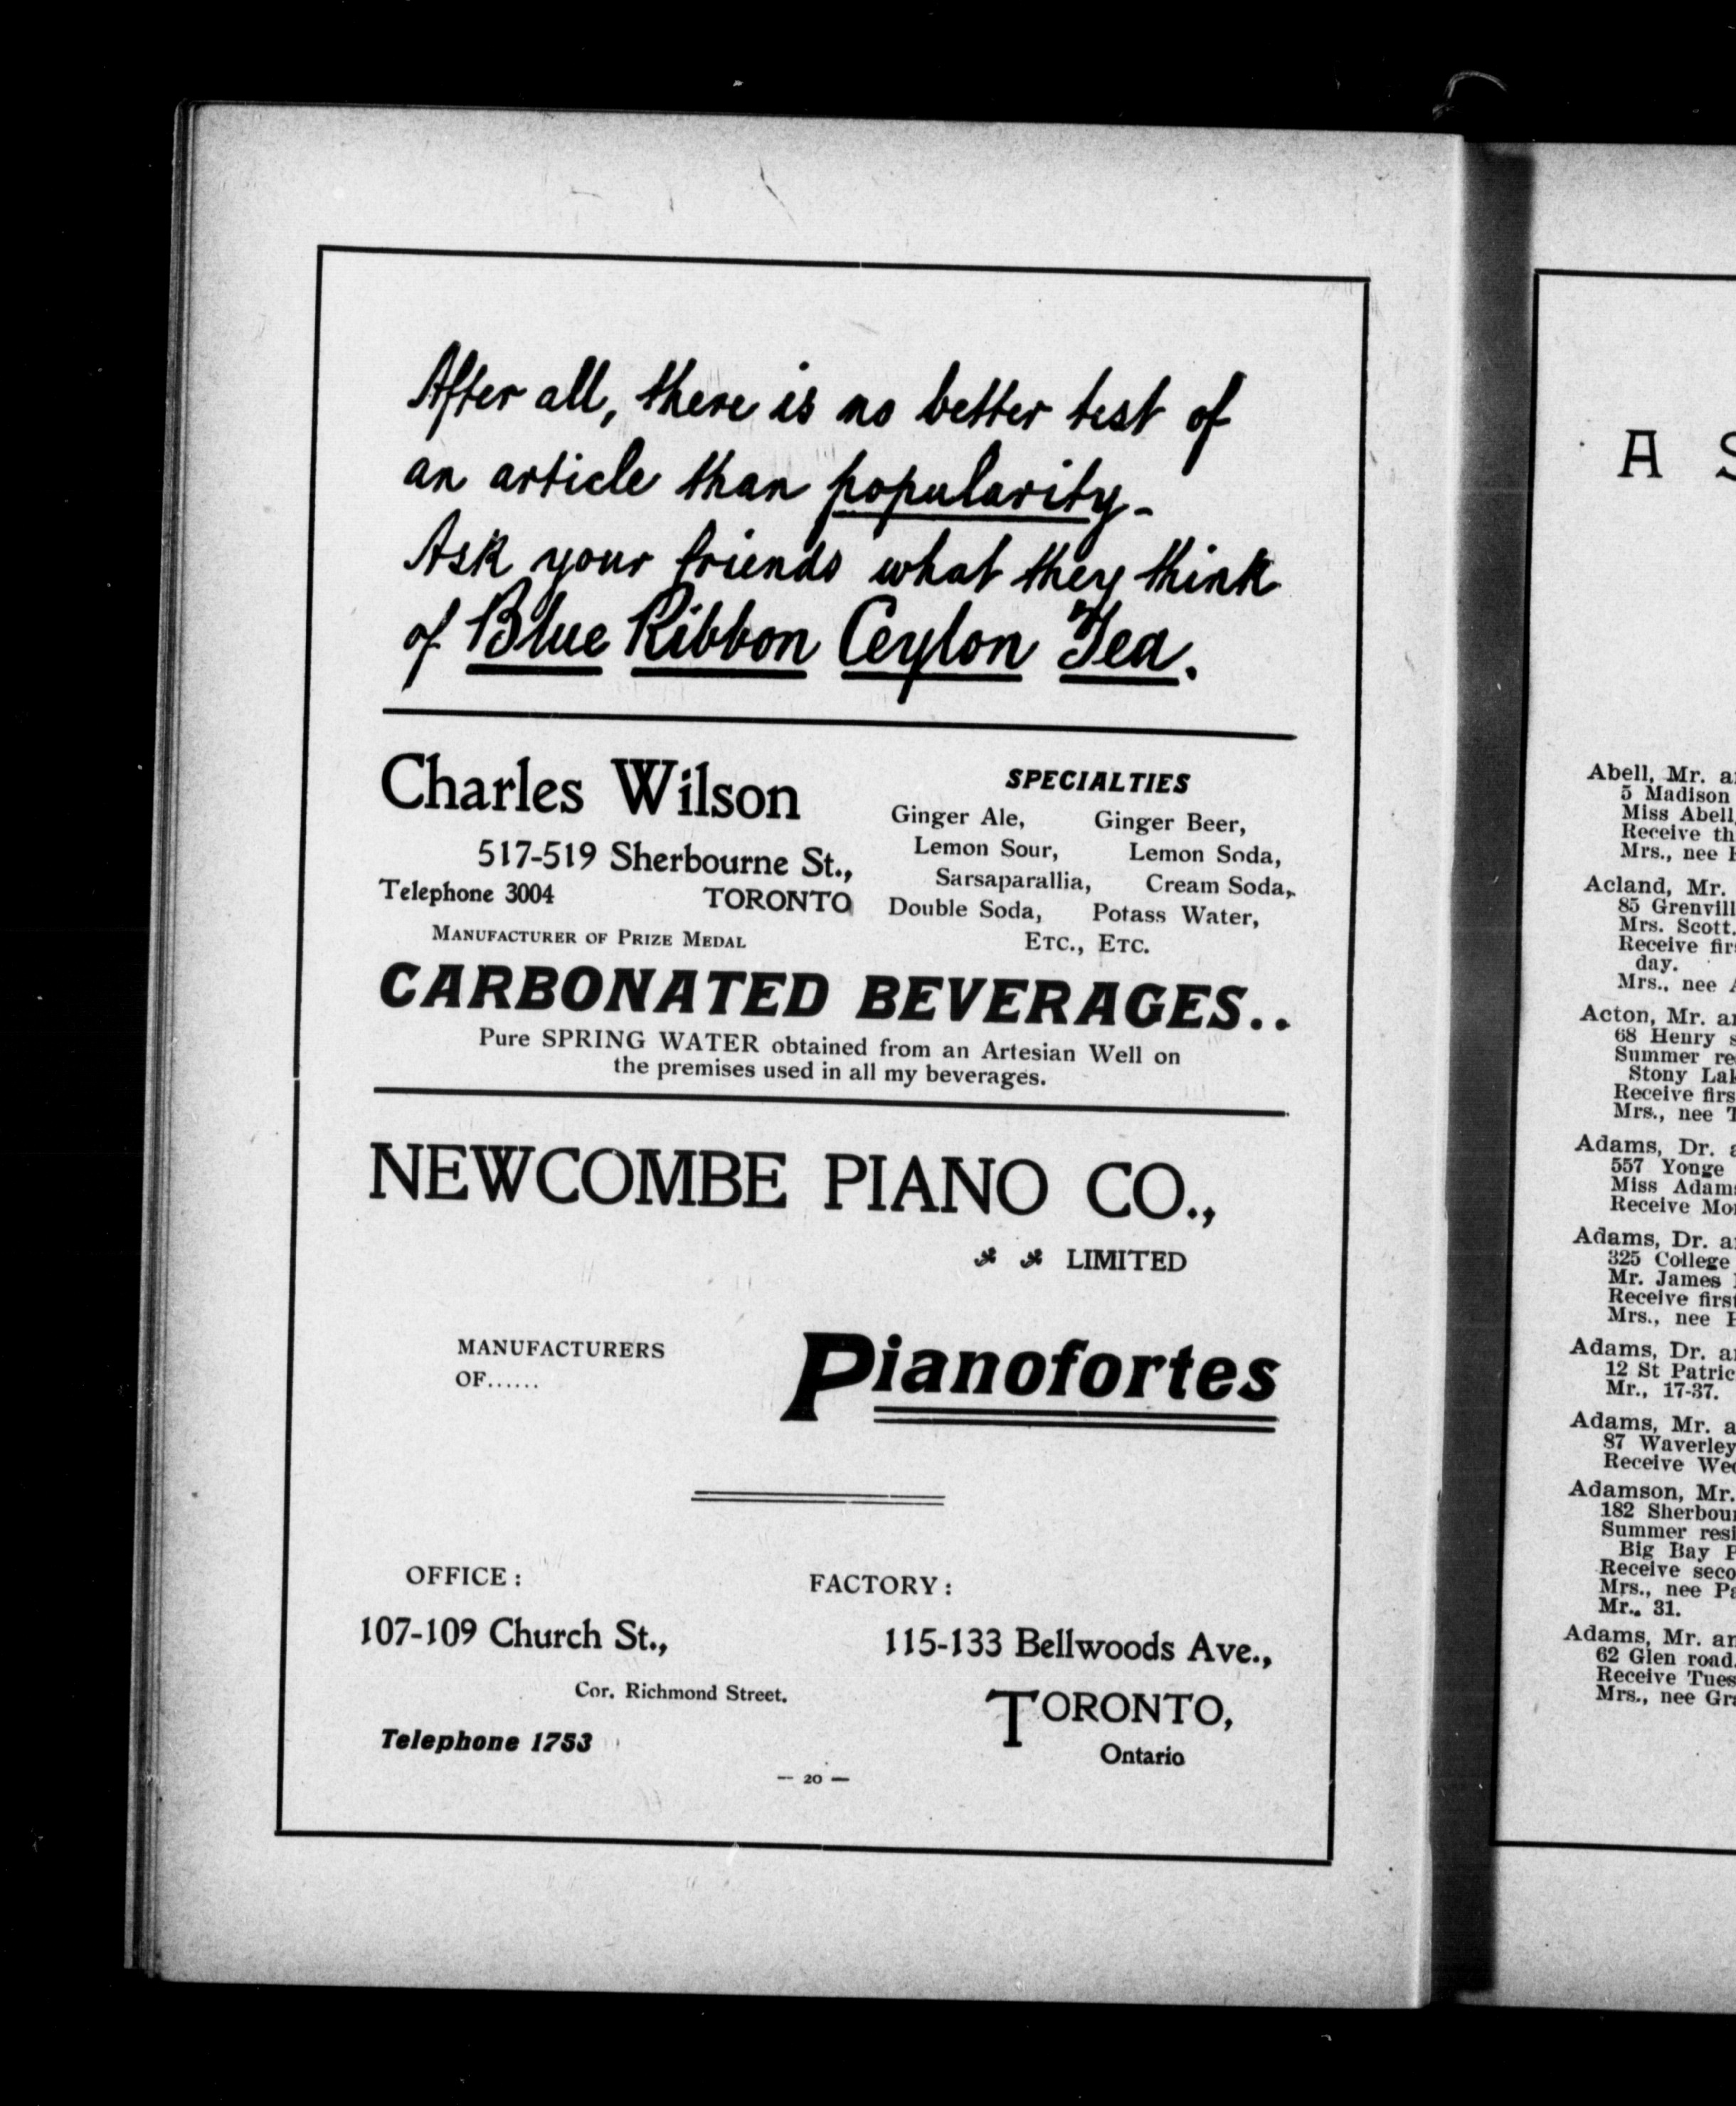 After all, there is no better test of
an article than popularity-
Ask your friends what they think
of Blue Ribbon Ceylon Tea.
Charles Wilson
517-519 Sherbourne St.,
Telephone 3004 TORONTO
MANUFACTURER OF PRIZE MEDAL
SPECIALTIES
Ginger Ale, Ginger Beer,
Lemon Sour, Lemon Soda,
Sarsaparallia, Cream Soda,
Double Soda, Potass Water,
ETC., ETC.
CARBONATED BEVERAGES..
Pure SPRING WATER obtained from an Artesian Well on
the premises used in all my beverages.
NEWCOMBE PIANO CO.,
LIMITED
MANUFACTURERS
OF......
Pianofortes
OFFICE:
107-109 Church St.,
Cor. Richmond Street.
Telephone 1753
FACTORY:
115-133 Bellwoods Ave.,
TORONTO,
Ontario
— 20 —
A S
Abell, Mr.
5 Madison
Miss Abell,
Receive
Mrs., nee
Acland, Mr.
85
Mrs. Scott.
Receive
day.
Mrs., nee
Acton, Mr.
68 Henry
Summer
Stony
Receive
Mrs., nee
Adams, Dr.
557 Yonge
Miss
Receive
Adams, Dr.
325 College
Mr. James
Receive
Mrs., nee
Adams, Dr.
12 St
Mr., 17-37.
Adams, Mr.
87 Waverley
Receive
Adamson, Mr.
182
Summer
Big Bay
Receive
Mrs., nee
Mr., 31.
Adams, Mr.
62 Glen road,
Receive
Mrs., nee